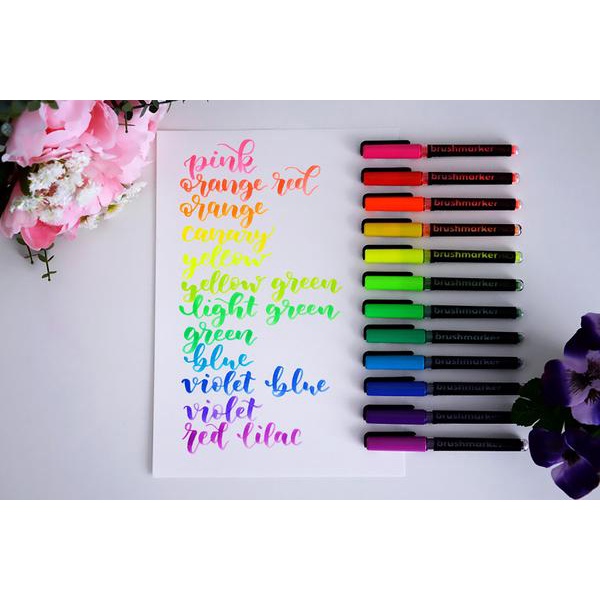 pink
orange red
orange
canary
yellow
yellow green
light green
green
blue
violet blue
violet
red lilac
brushmarker
brushmarker
brushmarker
brushmarker
brushmarker
brushmarker
brushmarker
brushmarker
brushmarker
brushmarker
brushmarker
brushmarker